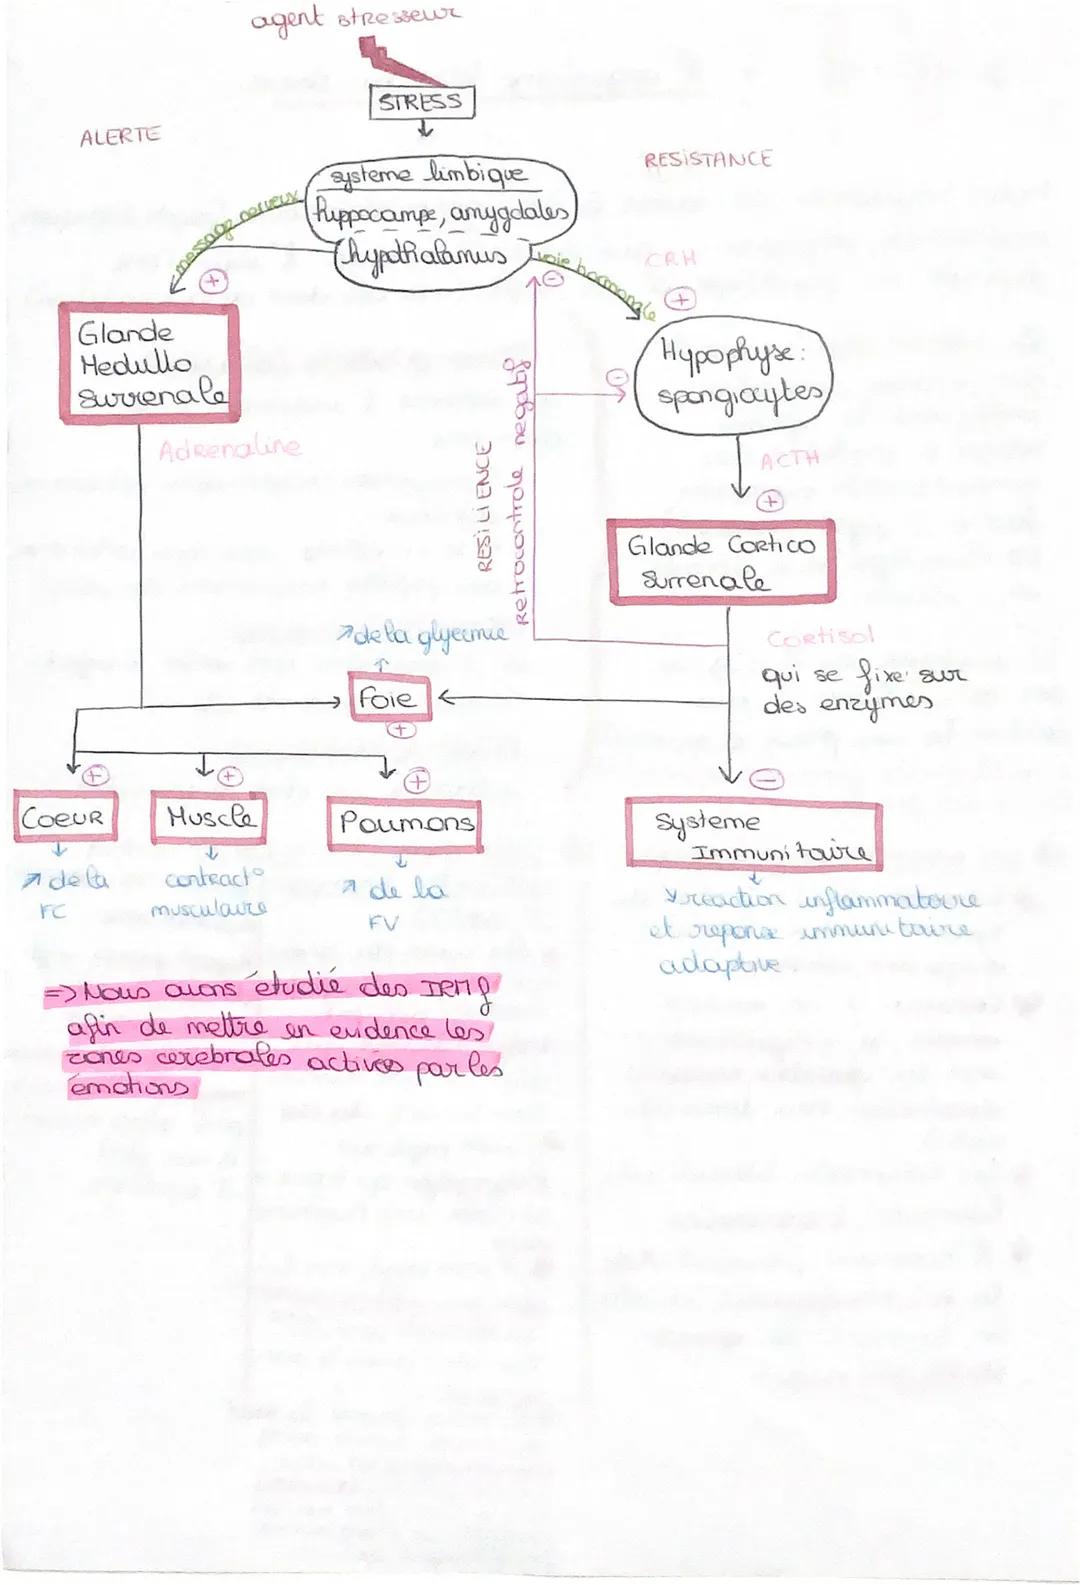 agent stresseur
STRESS
ALERTE
RESISTANCE
systeme limbique
hyppocampe, amygdales
hypothalamus
message nerveux
voie hormonale
CRH
+
-
+
Glande
Medullo
surrenale
Hypophyse:
spongiocytes
-
Adrénaline
RESILIENCE
Retrocontrole negatif
ACTH
+
Glande Cortico
surrenale
↗ de la glycemie
Foie
+
Cortisol
qui se fixe sur
des enzymes
+
+
+
-
Coeur
Muscle
Poumons
Systeme
Immunitaire
↗ de la
FC
contract°
musculaire
↗ de la
FV
↘ reaction inflammatoire
et reponse immunitaire
adaptive
=> Nous avons étudié des IRMf
afin de mettre en evidence les
zones cerebrales actives par les
émotions